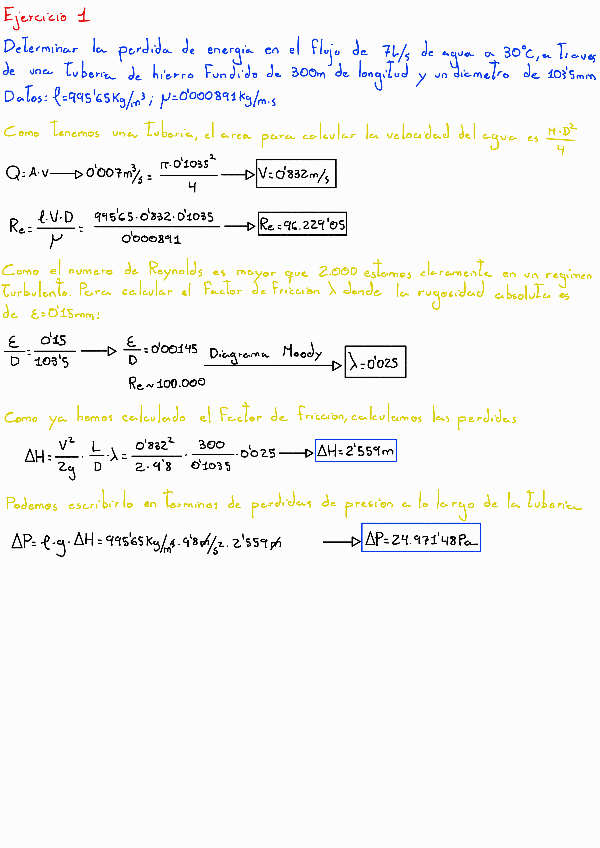 Ejercicio 1
Determinar la perdida de energia en el flujo de 7L/s de agua a 30°C, a traves
de una tuberia de hierro fundido de 300m de longitud y un diametro de 103'5mm
Datos: ρ=995'65Kg/m³; μ=0'000891Kg/m·s
Como tenemos una tuberia, el area para calcular la velocidad del agua es π·D²/4
Q=A·v → 0'007m³/s = π·0'1035²/4 → V=0'832m/s
Re = ρ·V·D/μ = 995'65·0'832·0'1035/0'000891 → Re=96.229'05
Como el numero de Reynolds es mayor que 2.000 estamos claramente en un regimen
turbulento. Para calcular el factor de friccion λ donde la rugosidad absoluta es
de ε=0'15mm:
ε/D = 0'15/103'5 → ε/D = 0'00145 Diagrama Moody → λ=0'025
Re~100.000
Como ya hemos calculado el factor de friccion, calculamos las perdidas
ΔH = V²/2g · L/D · λ = 0'832²/2·9'8 · 300/0'1035 · 0'025 → ΔH=2'559m
Podemos escribirlo en terminos de perdidas de presion a lo largo de la tuberia
ΔP = ρ·g·ΔH = 995'65Kg/m³·9'8m/s²·2'559m → ΔP=24.971'48Pa